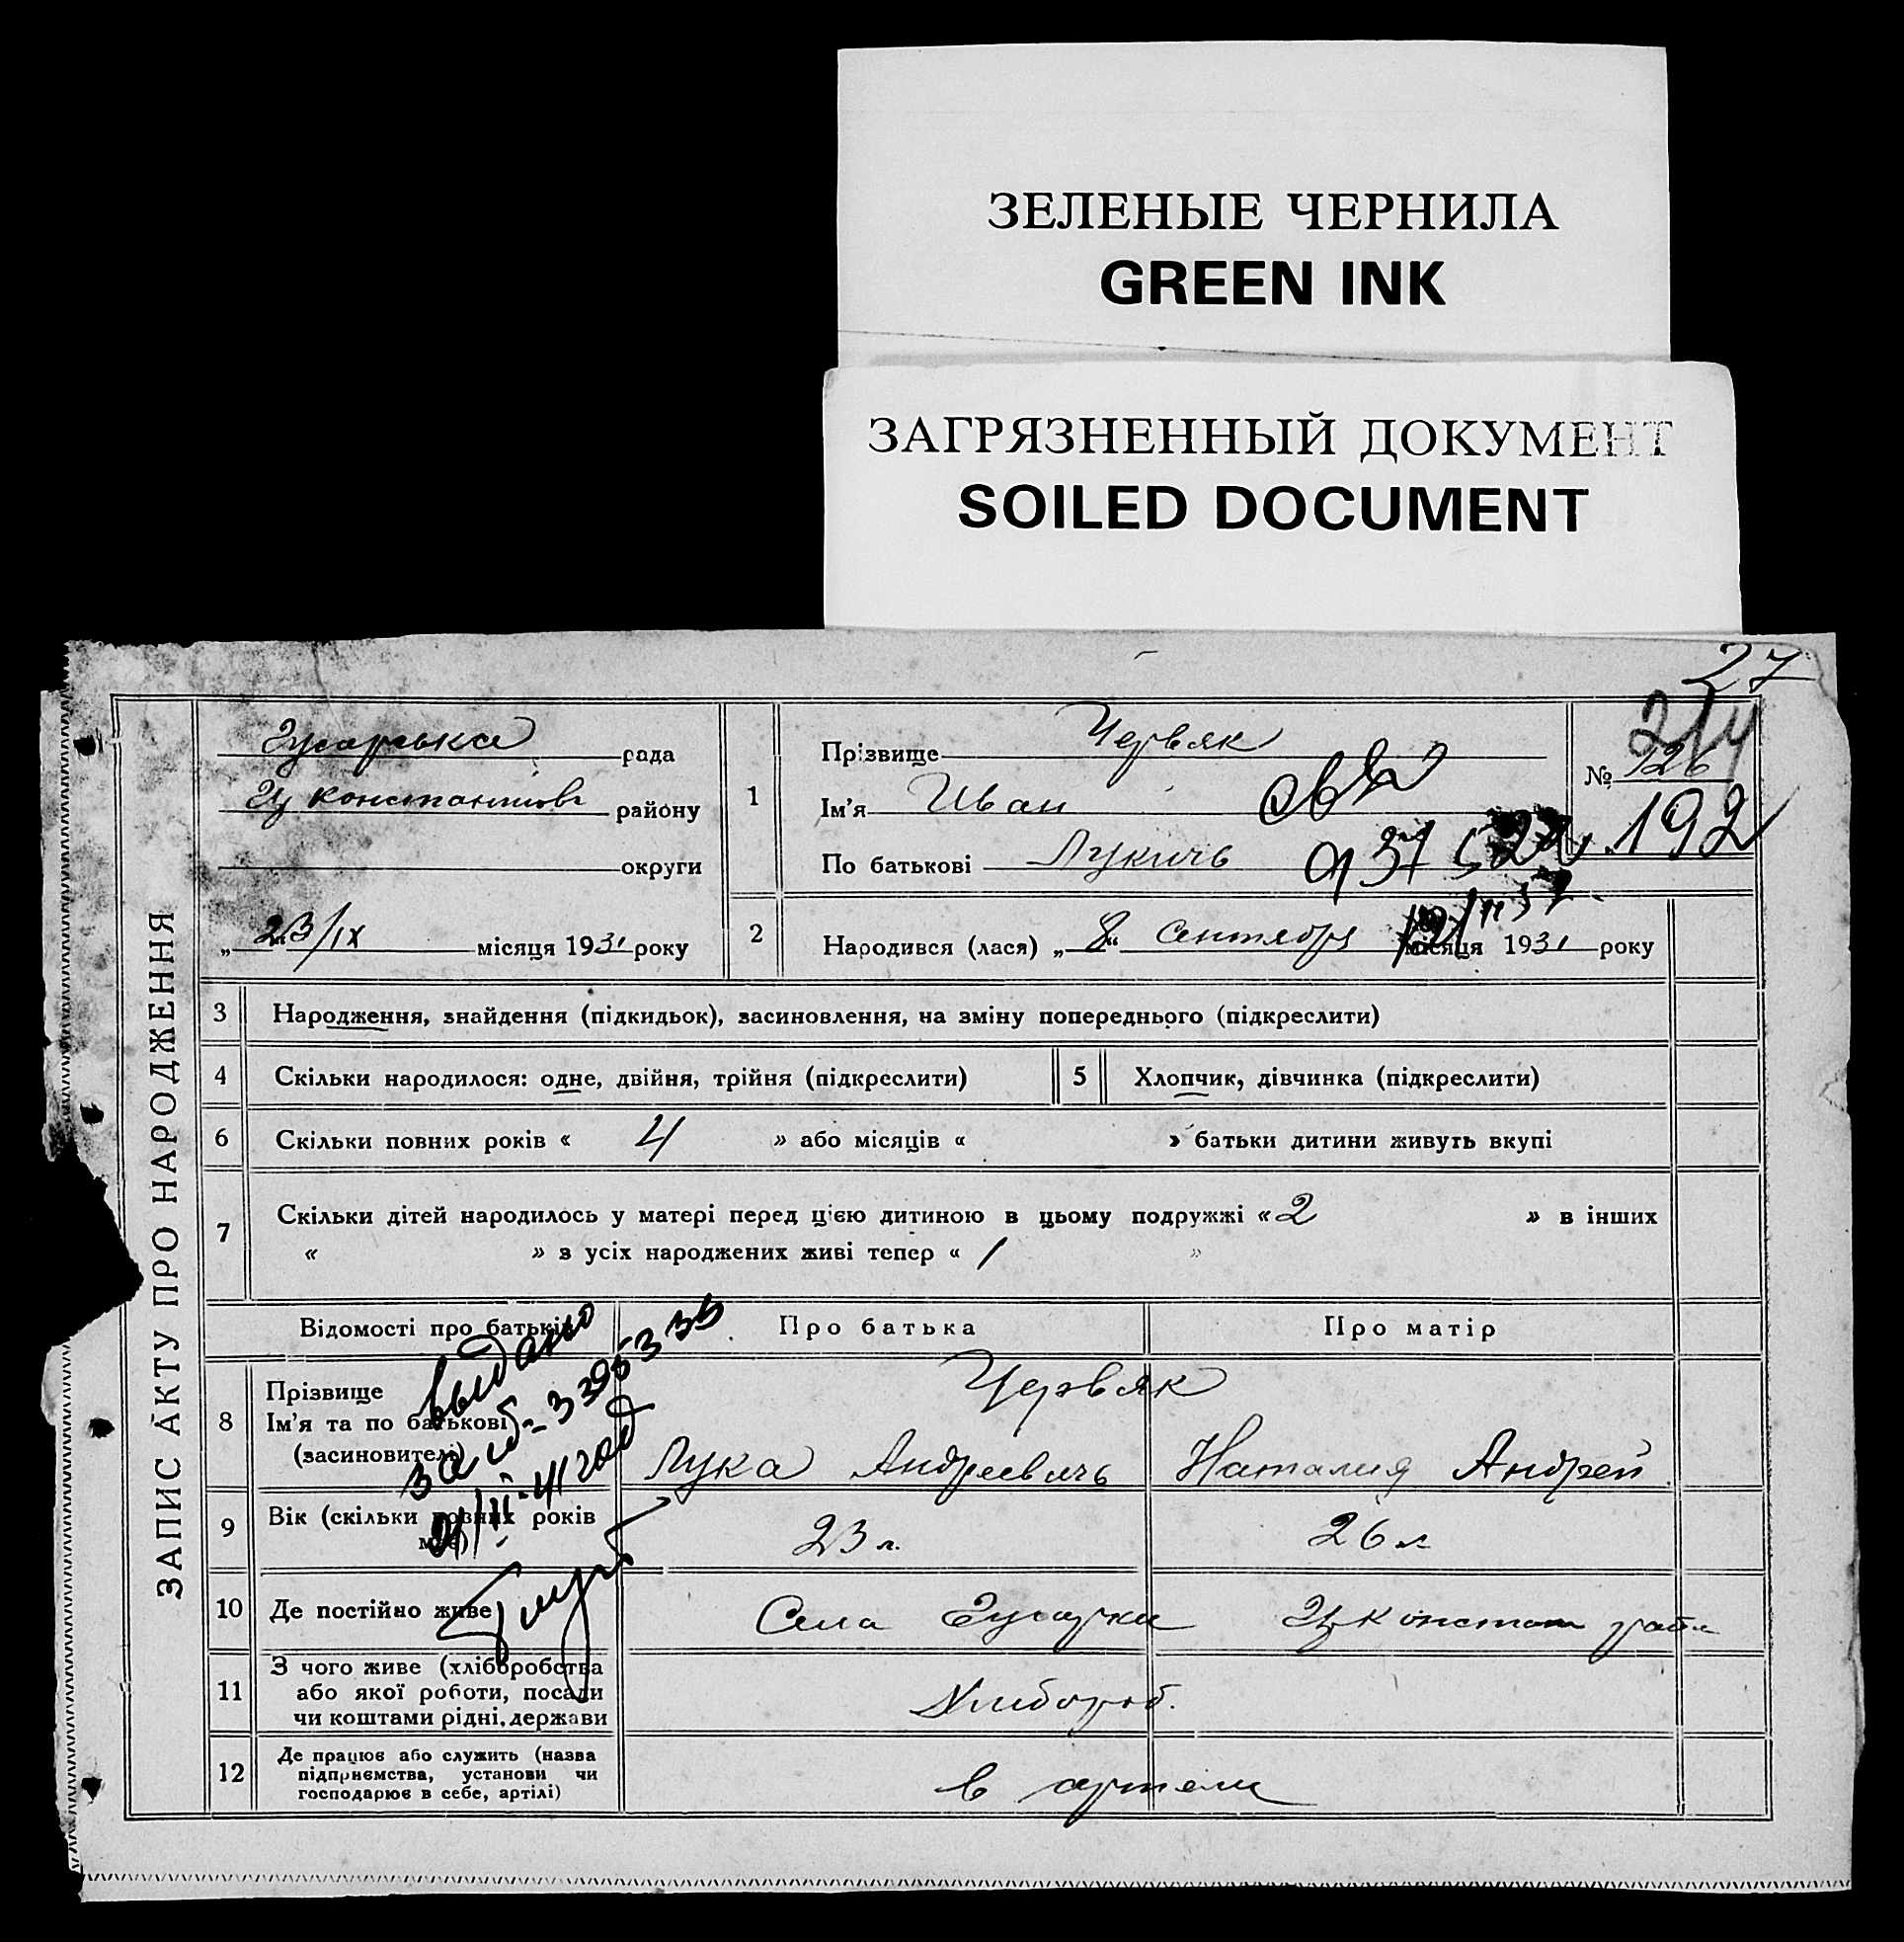 ЗЕЛЕНЫЕ ЧЕРНИЛА
GREEN INK
ЗАГРЯЗНЕННЫЙ ДОКУМЕНТ
SOILED DOCUMENT
27
214
ЗАПИС АКТУ ПРО НАРОДЖЕННЯ
Гусарська рада
району
округи
„ 23/IX місяця 1931 року
1
Прізвище Червяк
Ім'я Иван
По батькові Лукичь
№ 126
192
2
Народився (лася) „ 8 “ Сентября місяця 1931 року
3 Народження, знайдення (підкидьок), засиновлення, на зміну попереднього (підкреслити)
4 Скільки народилося: одне, двійня, трійня (підкреслити)
5 Хлопчик, дівчинка (підкреслити)
6 Скільки повних років « 4 » або місяців « » батьки дитини живуть вкупі
7 Скільки дітей народилось у матері перед цією дитиною в цьому подружжі « 2 » в інших
« » з усіх народжених живі тепер « 1 »
Відомості про батьків
Про батька
Про матір
выдано
8 Прізвище
Ім'я та по батькові
(засновителі)
Червяк
Лука Андреевичь
Наталия Андрей
9 Вік (скільки повних років має)
23 л.
26 л
10 Де постійно живе
Села Гусарки
11 З чого живе (хлібробства
або якої роботи, посади
чи коштами рідні, держави
Хлибороб.
12 Де працює або служить (назва
підприємства, установи чи
господарює в себе, артілі)
в артели